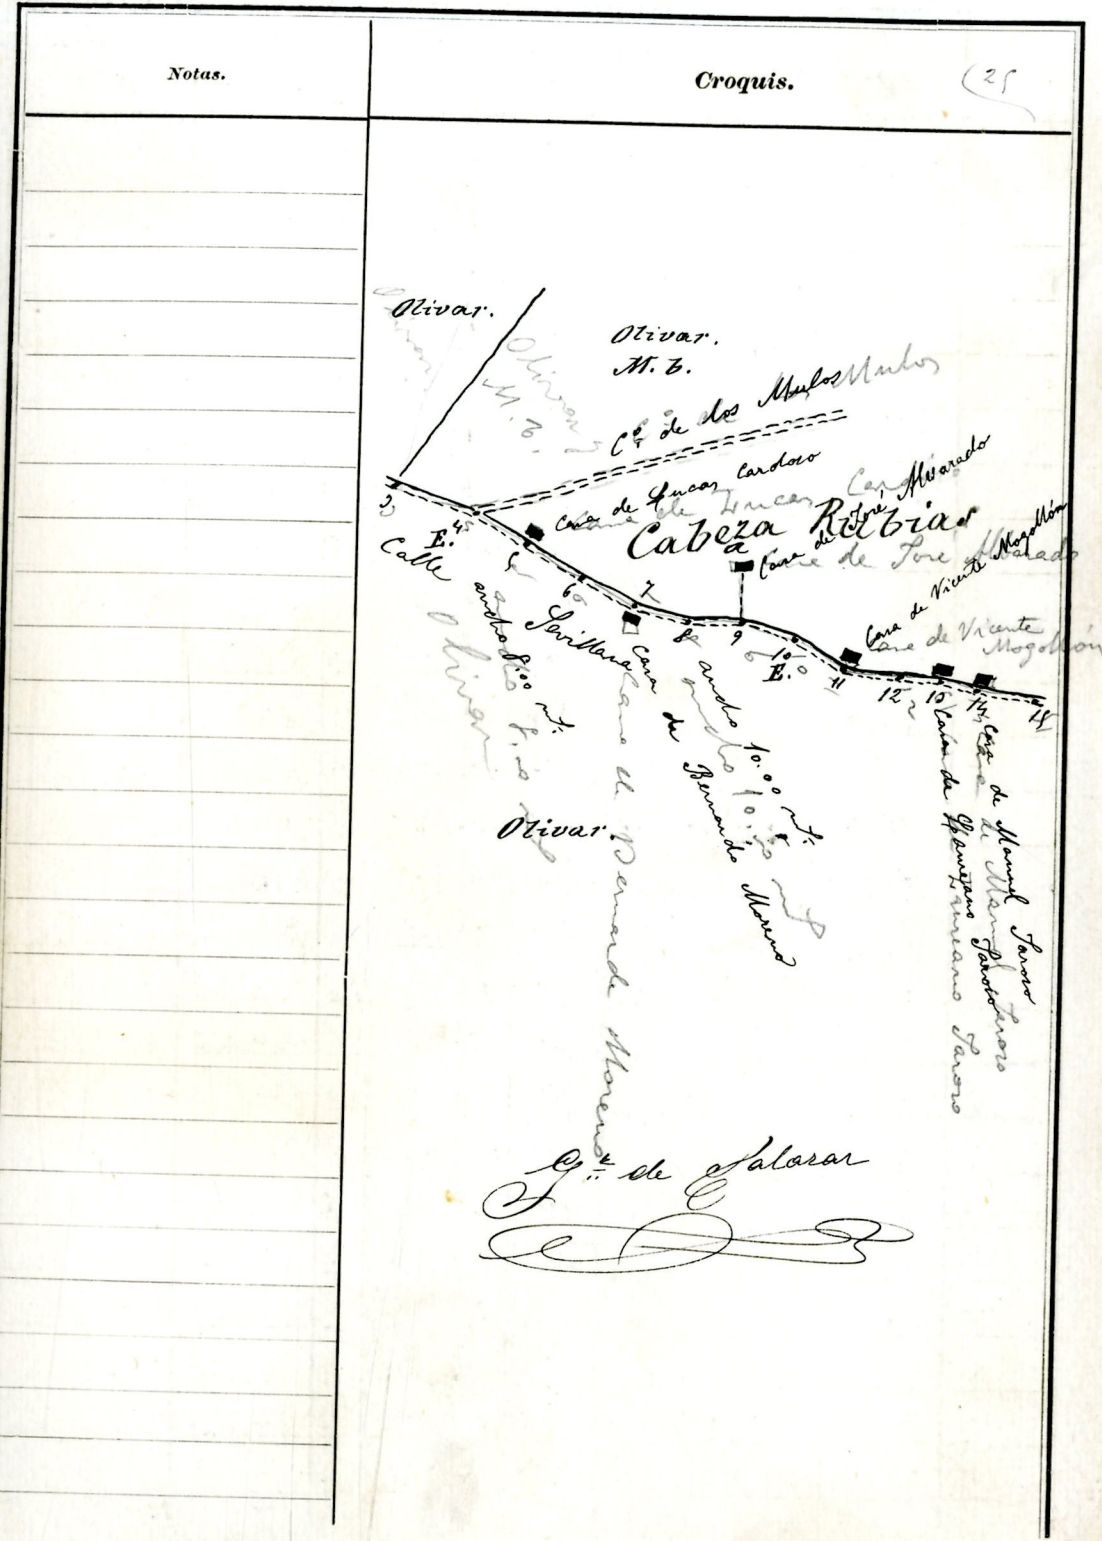 Notas.
Croquis.
25
Olivar.
Olivar.
M. b.
Olivar
M. b.
Cº de los Mulos
Mulos
Casa de Lucas Cardoso
Casa de Lucas
Cabeza Rubias
Casa de José Alvarado
Casa de José Alvarado
a
Casa de Vicente Mogollón
Casa de Vicente
Mogollón
3
4
E.
5
6
7
8
9
10
E.
11
12
13
14
15
Calle
Sevillana
ancho 8:00 mt.
ancho 8:00 mt
Olivar
Olivar.
Casa de Bernardo Moreno
Casa de Bernardo Moreno
ancho 10:00 mt.
ancho 10:00 mt
Casa de Laureano
Laureano
Casa de Manuel
de Manuel
de Salazar